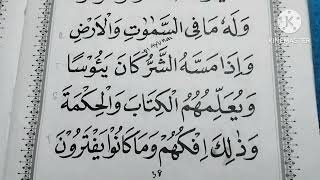 KINEMASTER
وَلَهٗ مَا فِي السَّمٰوٰتِ وَالْاَرْضِ
وَاِذَا مَسَّهُ الشَّرُّ كَانَ يَـُٔوْسًا
وَيُعَلِّمُهُمُ الْكِتَابَ وَالْحِكْمَةَ
وَذٰلِكَ اِفْكُهُمْ وَمَا كَانُوْا يَفْتَرُوْنَ